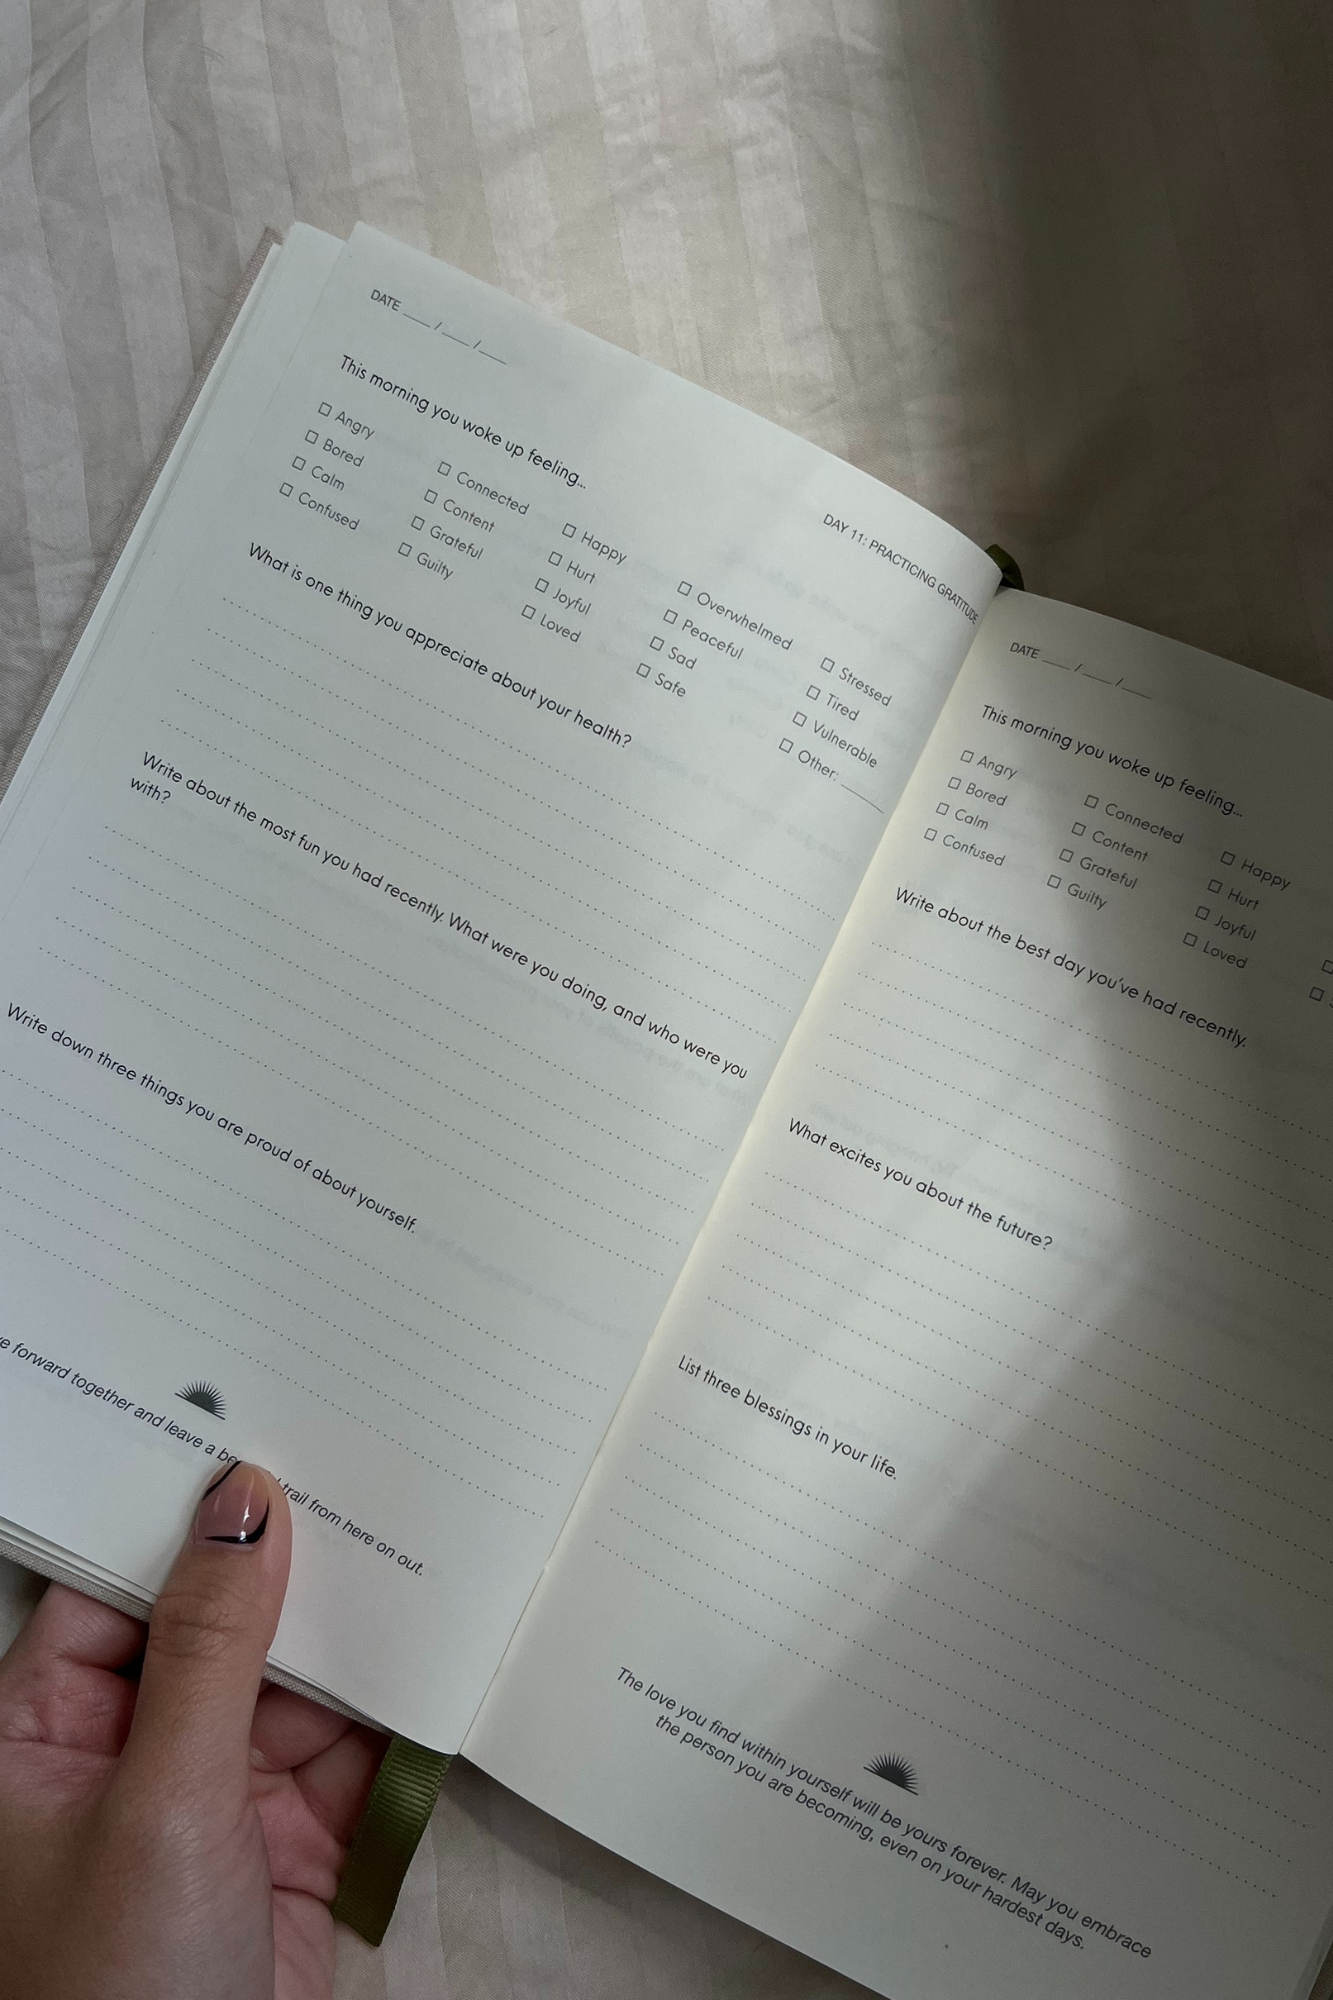 DATE ___ / ___ / ___
DAY 11: PRACTICING GRATITUDE
This morning you woke up feeling...
Angry
Bored
Calm
Confused
Connected
Content
Grateful
Guilty
Happy
Hurt
Joyful
Loved
Overwhelmed
Peaceful
Sad
Safe
Stressed
Tired
Vulnerable
Other: ____
What is one thing you appreciate about your health?
Write about the most fun you had recently. What were you doing, and who were you
with?
Write down three things you are proud of about yourself.
forward together and leave a trail from here on out.
DATE ___ / ___ / ___
This morning you woke up feeling...
Angry
Bored
Calm
Confused
Connected
Content
Grateful
Guilty
Happy
Hurt
Joyful
Loved
Write about the best day you've had recently.
What excites you about the future?
List three blessings in your life.
The love you find within yourself will be yours forever. May you embrace
the person you are becoming, even on your hardest days.